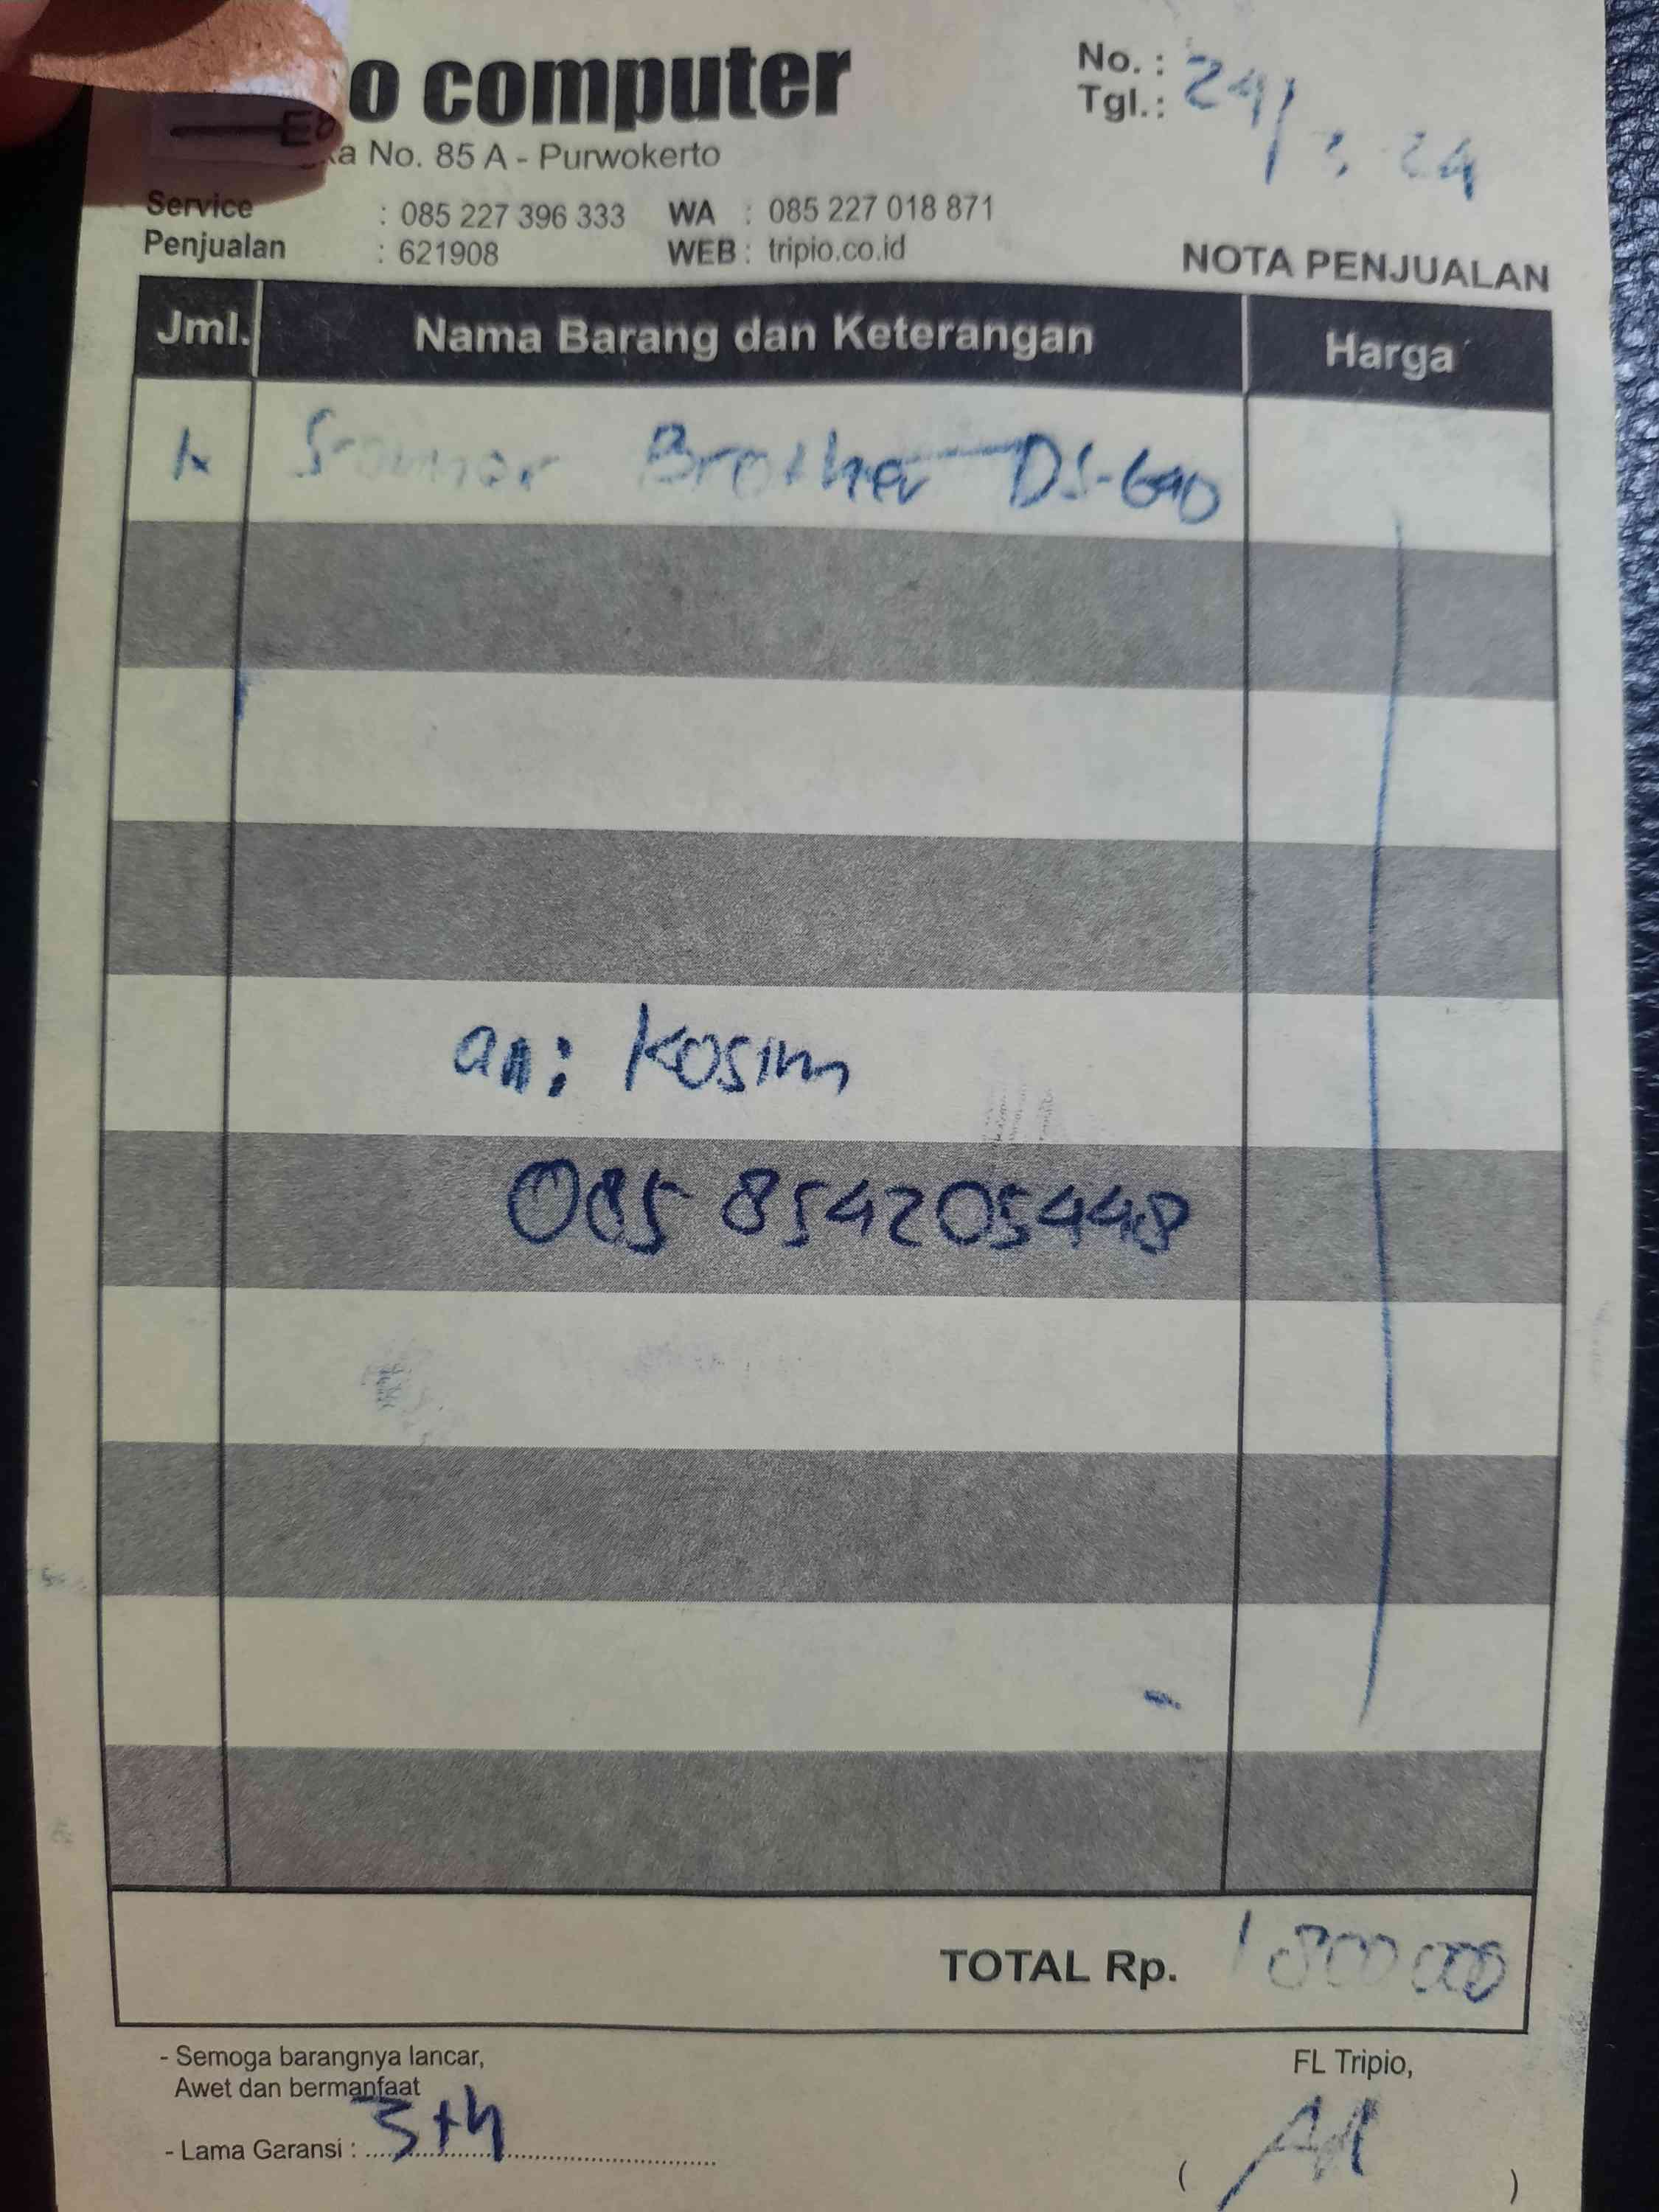 o computer
No. :
Tgl. : 24/3-24
ka No. 85 A - Purwokerto
Service : 085 227 396 333 WA : 085 227 018 871
Penjualan : 621908 WEB : tripio.co.id
NOTA PENJUALAN
Jml. Nama Barang dan Keterangan Harga
1x Scanner Brother DS-640
an: Kosim
085 854205448
TOTAL Rp. 1800 000
- Semoga barangnya lancar,
Awet dan bermanfaat
FL Tripio,
- Lama Garansi : 3 th
( )